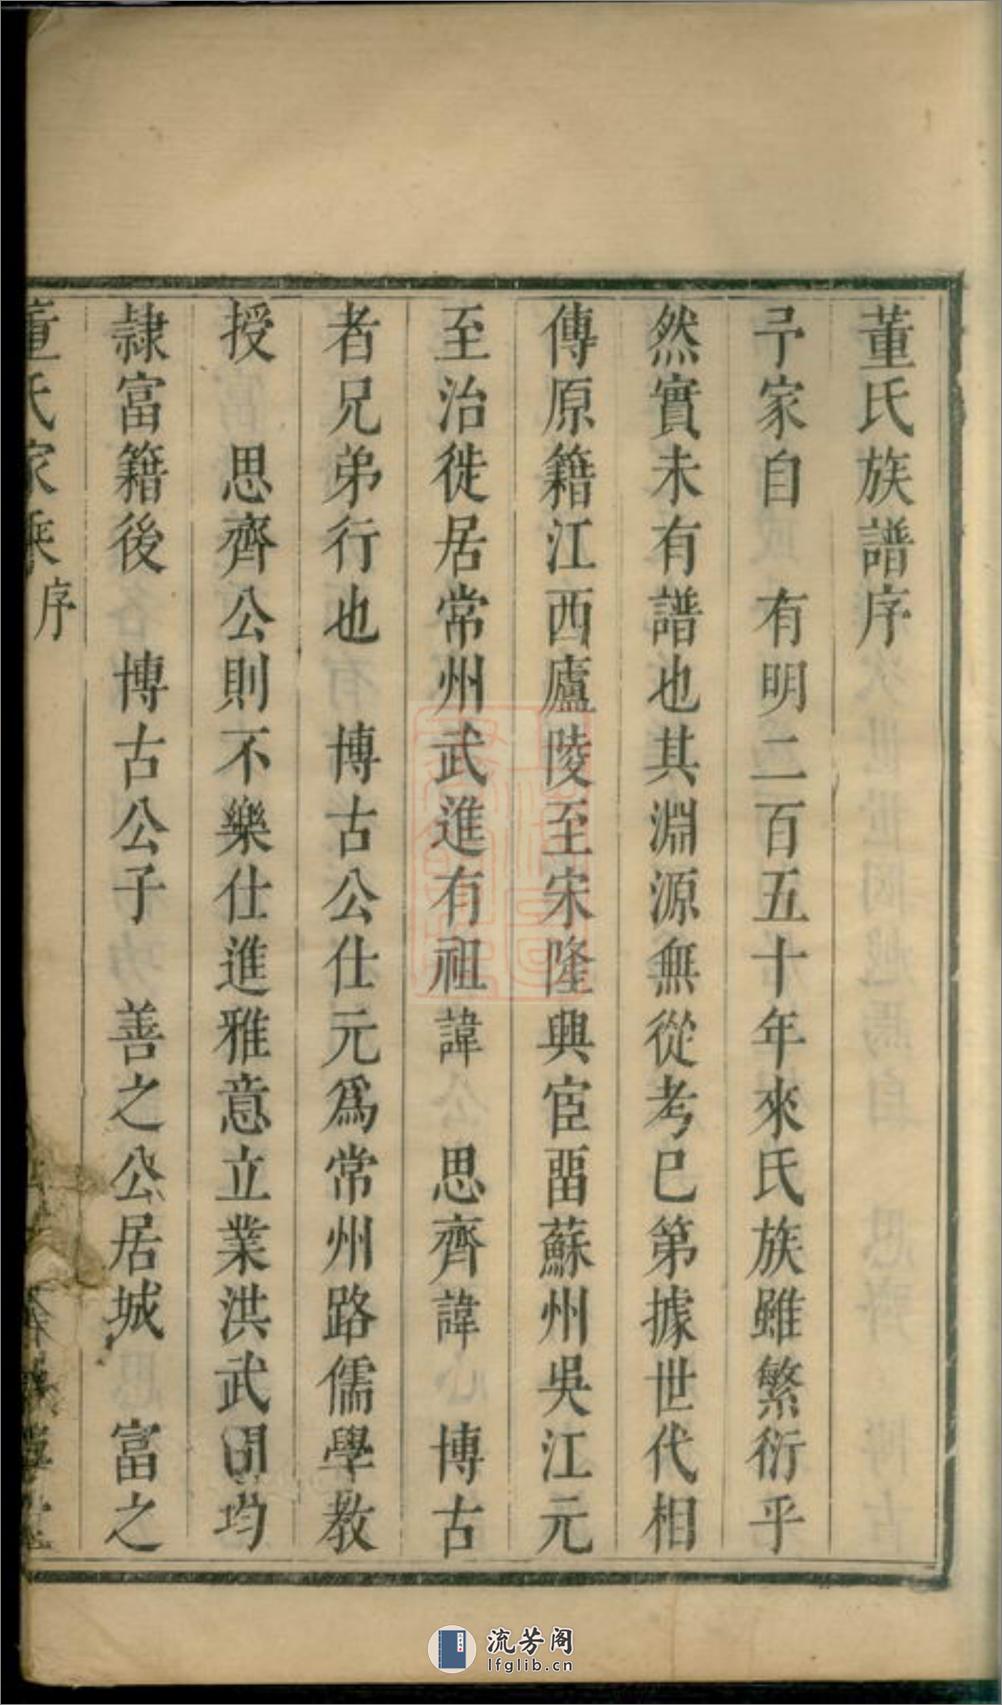 董氏族譜序
予家自　有明二百五十年來氏族雖繁衍乎
然實未有譜也其淵源無從考已第據世代相
傳原籍江西廬陵至宋隆興宦畱蘇州吳江元
至治徙居常州武進有祖諱　思齊諱　博古
者兄弟行也　博古公仕元爲常州路儒學教
授　思齊公則不樂仕進雅意立業洪武間均
隷富籍後　博古公子　善之公居城　富之
董氏家乘 序
流芳阁
lfglib.cn